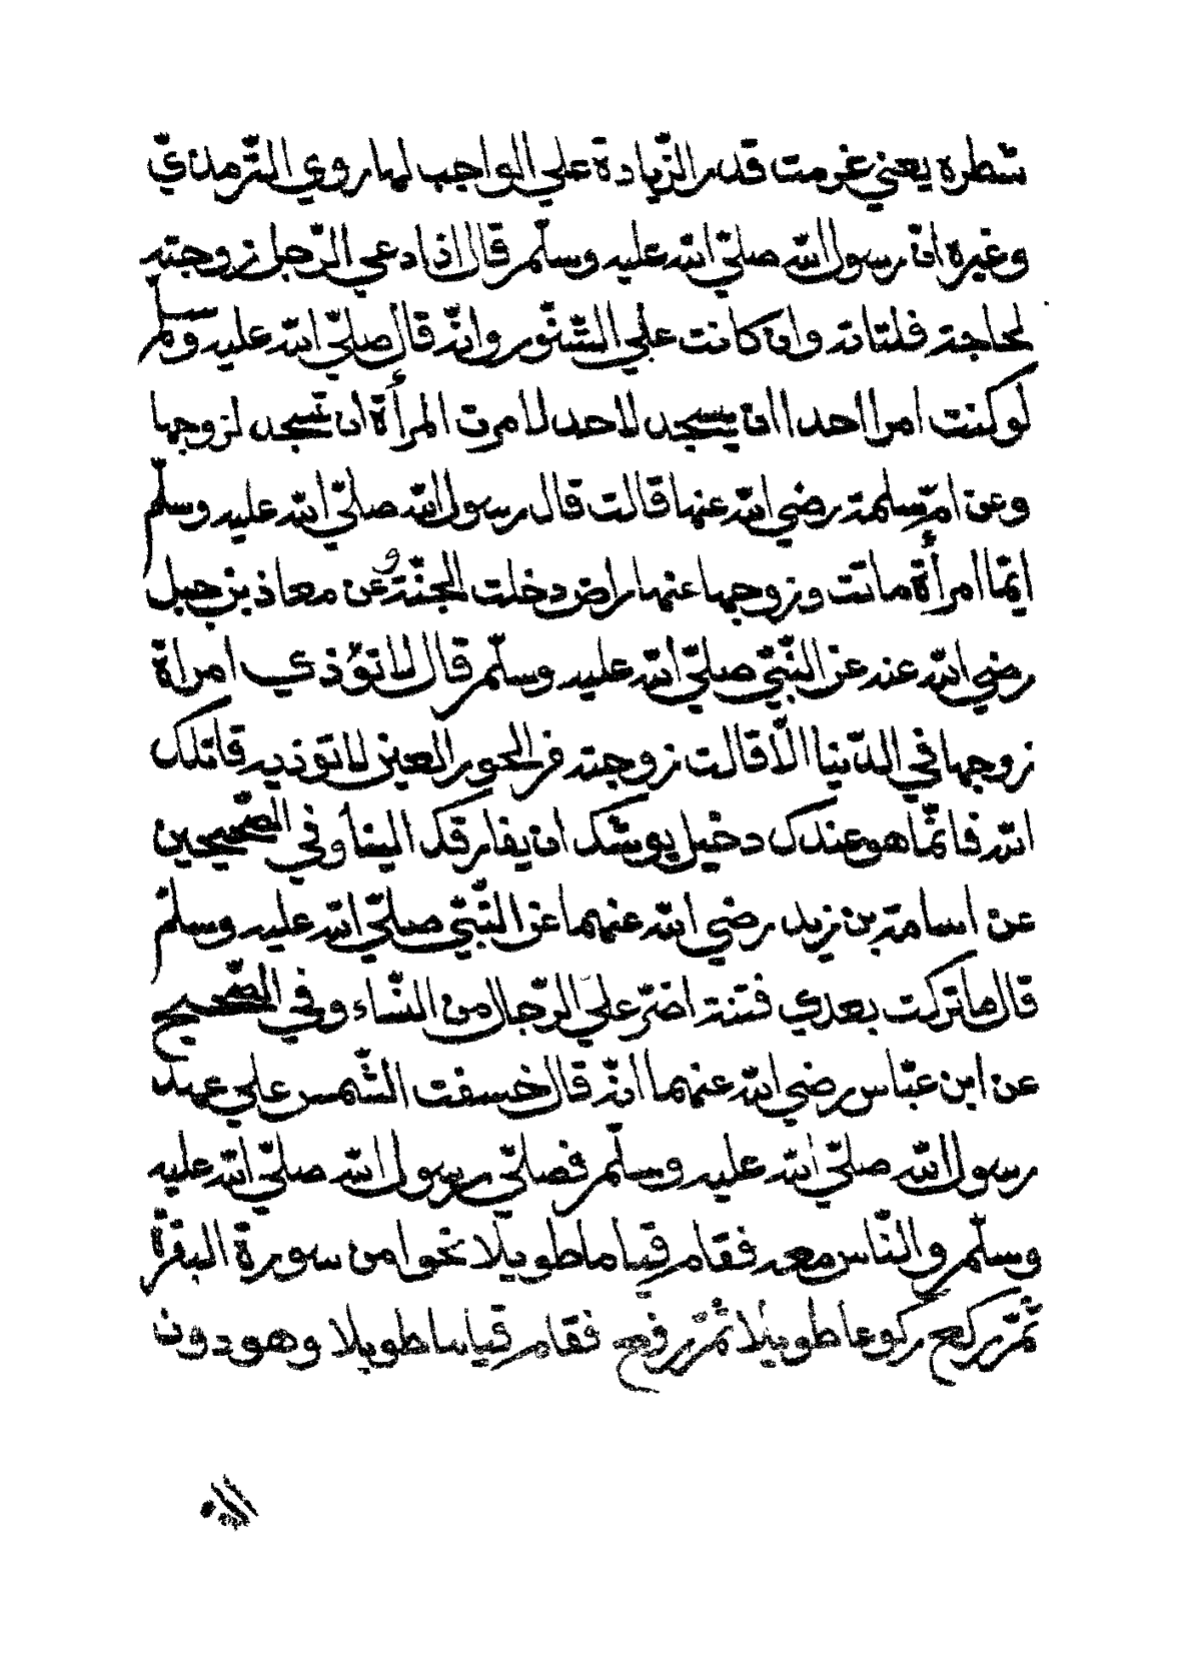 شطره يعني غرمت قدر الزّيادة علي الواجب لما روي التّرمذيّ
وغيره ان رسول اللّه صليّ اللّه عليه وسلّم قال اذا دعي الرّجل زوجته
لحاجته فلتاته وان كانت علي التّنّور وانّه قال صليّ اللّه عليه وسلّم
لو كنت امرا احدا ان يسجد لاحد لامرت المرأة ان تسجد لزوجها
وعن امّ سلمة رضي اللّه عنها قالت قال رسول اللّه صليّ اللّه عليه وسلّم
ايّما امرأة ماتت وزوجها عنها راض دخلت الجنّة وعن معاذ بن جبل
رضي اللّه عنه عن النّبيّ صليّ اللّه عليه وسلّم قال لا تؤذي امراة
زوجها في الدّنيا الّا قالت زوجته من الحور العين لا توذيه قاتلك
اللّه فانّما هو عندك دخيل يوشك ان يفارقك الينا وفي الصّحيحين
عن اسامة بن زيد رضي اللّه عنهما عن النّبيّ صليّ اللّه عليه وسلّم
قال ما تركت بعدي فتنة اضرّ عليَ الرّجال من النّساء وفي الصّحيح
عن ابن عبّاس رضي اللّه عنهما انّه قال خسفت الشّمس علي عهد
رسول اللّه صليّ اللّه عليه وسلّم فصليّ رسول اللّه صليّ اللّه عليه
وسلّم والنّاس معه فقام قياما طويلا نحوا من سورة البقرة
ثمّ ركع ركوعا طويلا ثمّ رفع فقام قياما طويلا وهو دون